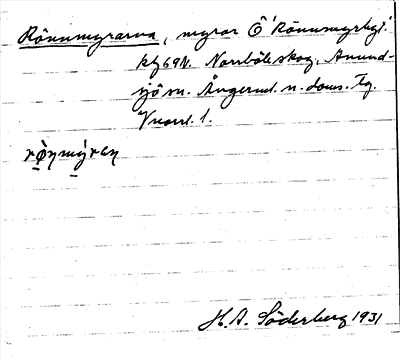 Rönnmyrarna, myror Ö 'Rönnmyrbgt.'
kf 69N. Norrböle skog. Anund-
sjö sn. Ångerml. n. doms. Tg.
1.
rönmýren
H. A. Söderberg 1931